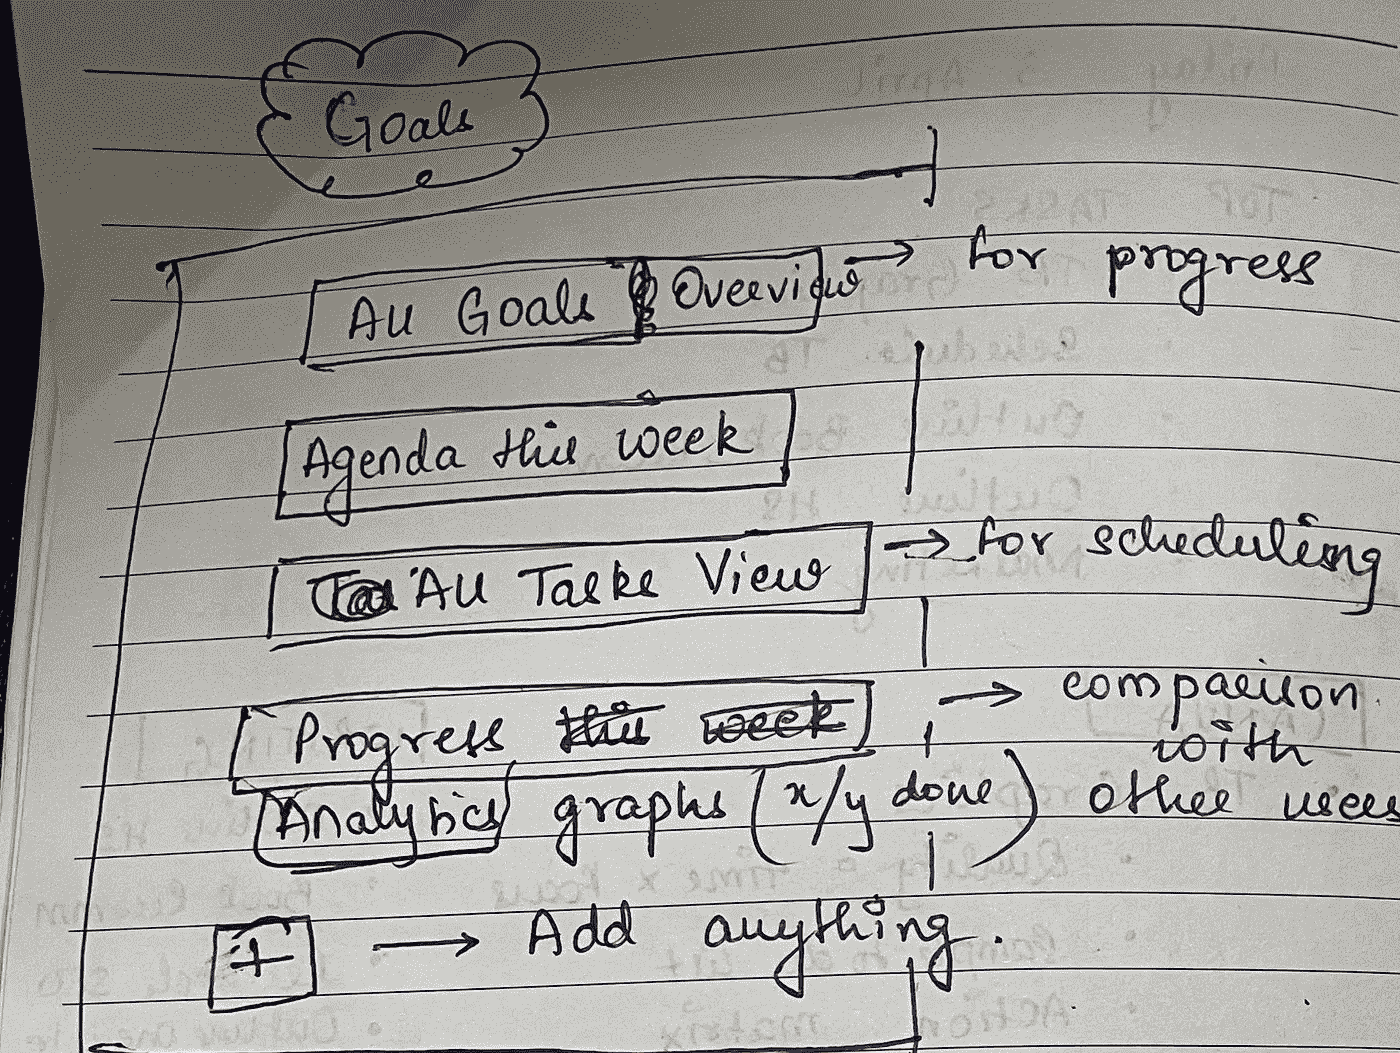 Goals
All Goals Overview → for progress
Agenda this week
All Tasks View → for scheduling
Progress this week → comparison
with
Analytics graphs (x/y done) other users
+ → Add anything.